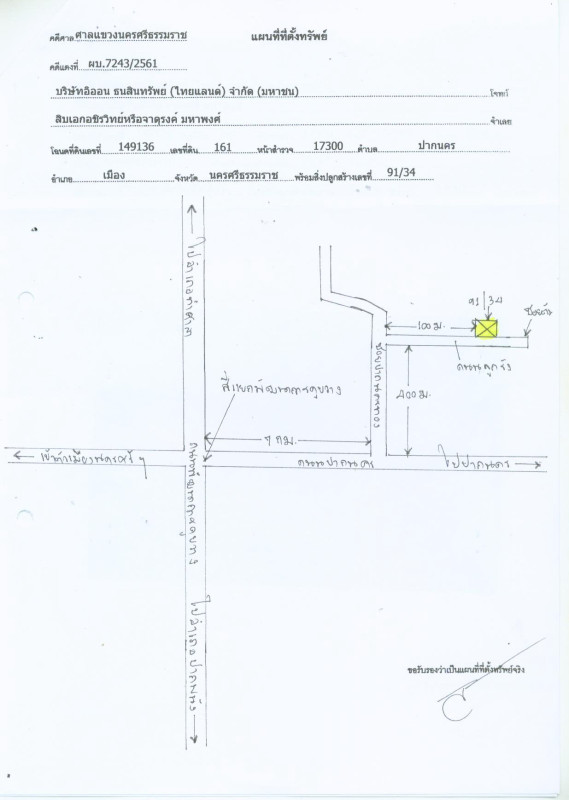 คดีศาล ศาลแขวงนครศรีธรรมราช แผนที่ที่ตั้งทรัพย์
คดีแดงที่ ผบ.7243/2561
บริษัทอิออน ธนสินทรัพย์ (ไทยแลนด์) จำกัด (มหาชน) โจทก์
สิบเอกอชิรวิทย์หรือจาตุรงค์ มหาพงศ์ จำเลย
โฉนดที่ดินเลขที่ 149136 เลขที่ดิน 161 หน้าสำรวจ 17300 ตำบล ปากนคร
อำเภอ เมือง จังหวัด นครศรีธรรมราช พร้อมสิ่งปลูกสร้างเลขที่ 91/34
ไปอำเภอท่าศาลา
91/34
100 ม.
ถนนลูกรัง
400 ม.
สี่แยกพัฒนาการคูขวาง
7 กม.
เข้าตัวเมืองนครศรีฯ
ถนนปากนคร
ไปปากนคร
ถนนพัฒนาการคูขวาง
ไปอำเภอปากพนัง
ขอรับรองว่าเป็นแผนที่ที่ตั้งทรัพย์จริง